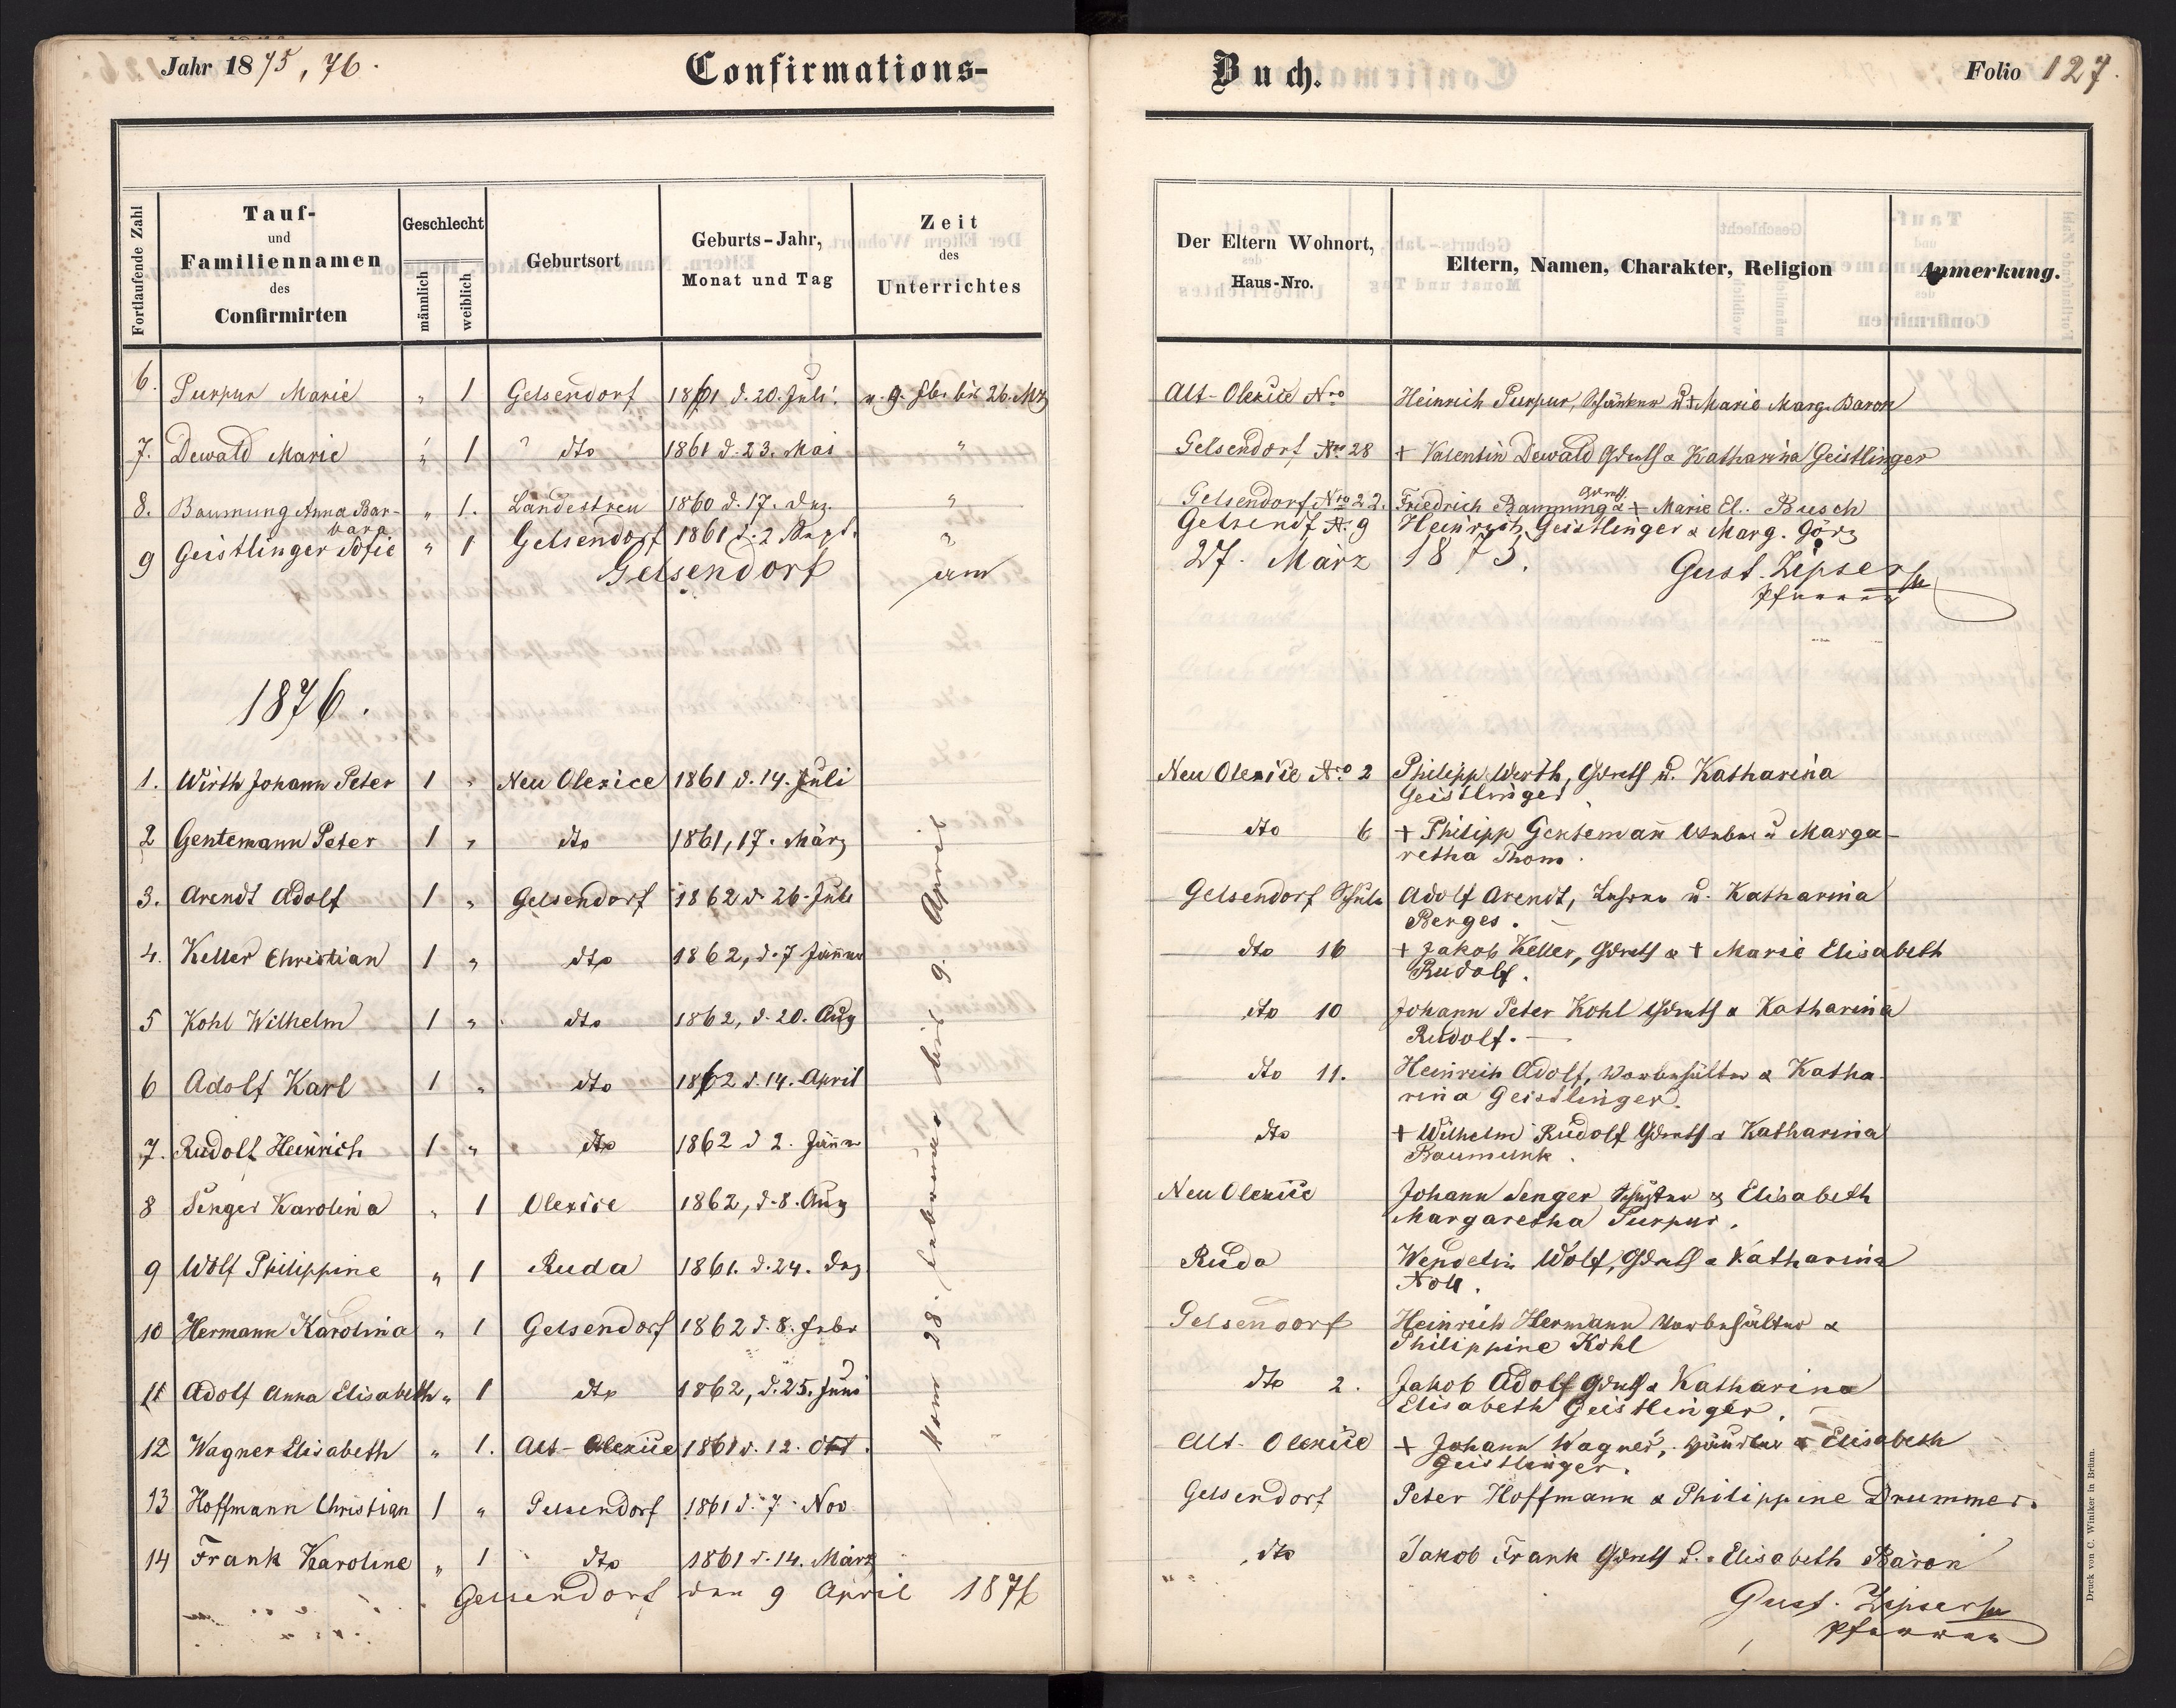 Jahr 1875, 76.
Confirmations-
Buch.
Folio 127.
Fortlaufende Zahl
Tauf-
und
Familiennamen
des
Confirmirten
Geschlecht
männlich
weiblich
Geburtsort
Geburts-Jahr,
Monat und Tag
Zeit
des
Unterrichtes
Der Eltern Wohnort,
Haus-Nro.
Eltern, Namen, Charakter, Religion
Anmerkung.
6. Purpur Marie " 1 Gelsendorf 1861 d. 20. Juli. v. 9. Fbr. bis 26. Mz Alt-Olexice Nro Heinrich Purpur, Schänker u. + Marie Marg. Baron
7. Dewald Marie " 1 dto 1861 d. 23. Mai " Gelsendorf Nro 28 + Valentin Dewald Gdrth & Katharina Geistlinger
8. Baumung Anna Bar- " 1. Landestreu 1860 d. 17. Dez. " Gelsendorf Nro 22. Friedrich Baumung & + Marie El. Busch
bara
9 Geistlinger Sofie " 1 Gelsendorf 1861 d. 2 Sept. " Gelsendf N. 9 Heinrich Geistlinger & Marg. Görz
Gelsendorf am 27. März 1875. Gust. Zipser
Pfarrer
1876.
1. Wirth Johann Peter 1 " Neu Olexice 1861 d. 14. Juli Neu Olexice No 2 Philipp Wirth, Gdrth u. Katharina
Geistlinger
2 Gentemann Peter 1 " dto 1861, 17. März dto 6 + Philipp Gentemañ Weber u Marga-
retha Thom.
3. Arendt Adolf 1 " Gelsendorf 1862 d. 26. Juli Gelsendorf Schule Adolf Arendt, Lehrer u. Katharina
Berges.
4. Keller Christian 1 " dto 1862, d. 7 Jänner dto 16 + Jakob Keller, Gdrth & + Marie Elisabeth
Rudolf.
5 Kohl Wilhelm 1 " dto 1862, d. 20. Aug dto 10 Johann Peter Kohl Gdrth & Katharina
Rudolf.
6 Adolf Karl 1 " dto 1862 d. 14. April dto 11. Heinrich Adolf, Vorbehälter & Katha-
rina Geistlinger.
7. Rudolf Heinrich 1 " dto 1862 d 2. Jänner dto + Wilhelm Rudolf Gdrth & Katharina
Baumunk.
8 Senger Karolina " 1 Olexice 1862, d. 8. Aug Neu Olexice Johann Senger Schuster & Elisabeth
Margaretha Purpur.
9 Wolf Philippine " 1 Ruda 1861. d. 24. Dez Ruda Wendelin Wolf, Gdrth & Katharina
Noll.
10 Hermann Karolina " 1 Gelsendorf 1862 d. 8. Febr Gelsendorf Heinrich Hermann Vorbehälter &
Philippine Kohl
11 Adolf Anna Elisabeth " 1 dto 1862, d. 25. Juni dto 2. Jakob Adolf Gdrth & Katharina
Elisabeth Geistlinger.
12 Wagner Elisabeth " 1. Alt-Olexice 1861 d. 12. Okt. Alt-Olexice + Johann Wagner, Häusler & Elisabeth
Geistlinger.
13 Hoffmann Christian 1 " Gelsendorf 1861 d. 7. Nov Gelsendorf Peter Hoffmann & Philippine Drummer.
14 Frank Karoline " 1 dto 1861 d. 14. März dto Jakob Frank Gdrth u. Elisabeth Baron
vom 28. Februar bis 9. April
Gelsendorf den 9 April 1876 Gust. Zipser
Pfarrer
Druck von C. Winiker in Brünn.